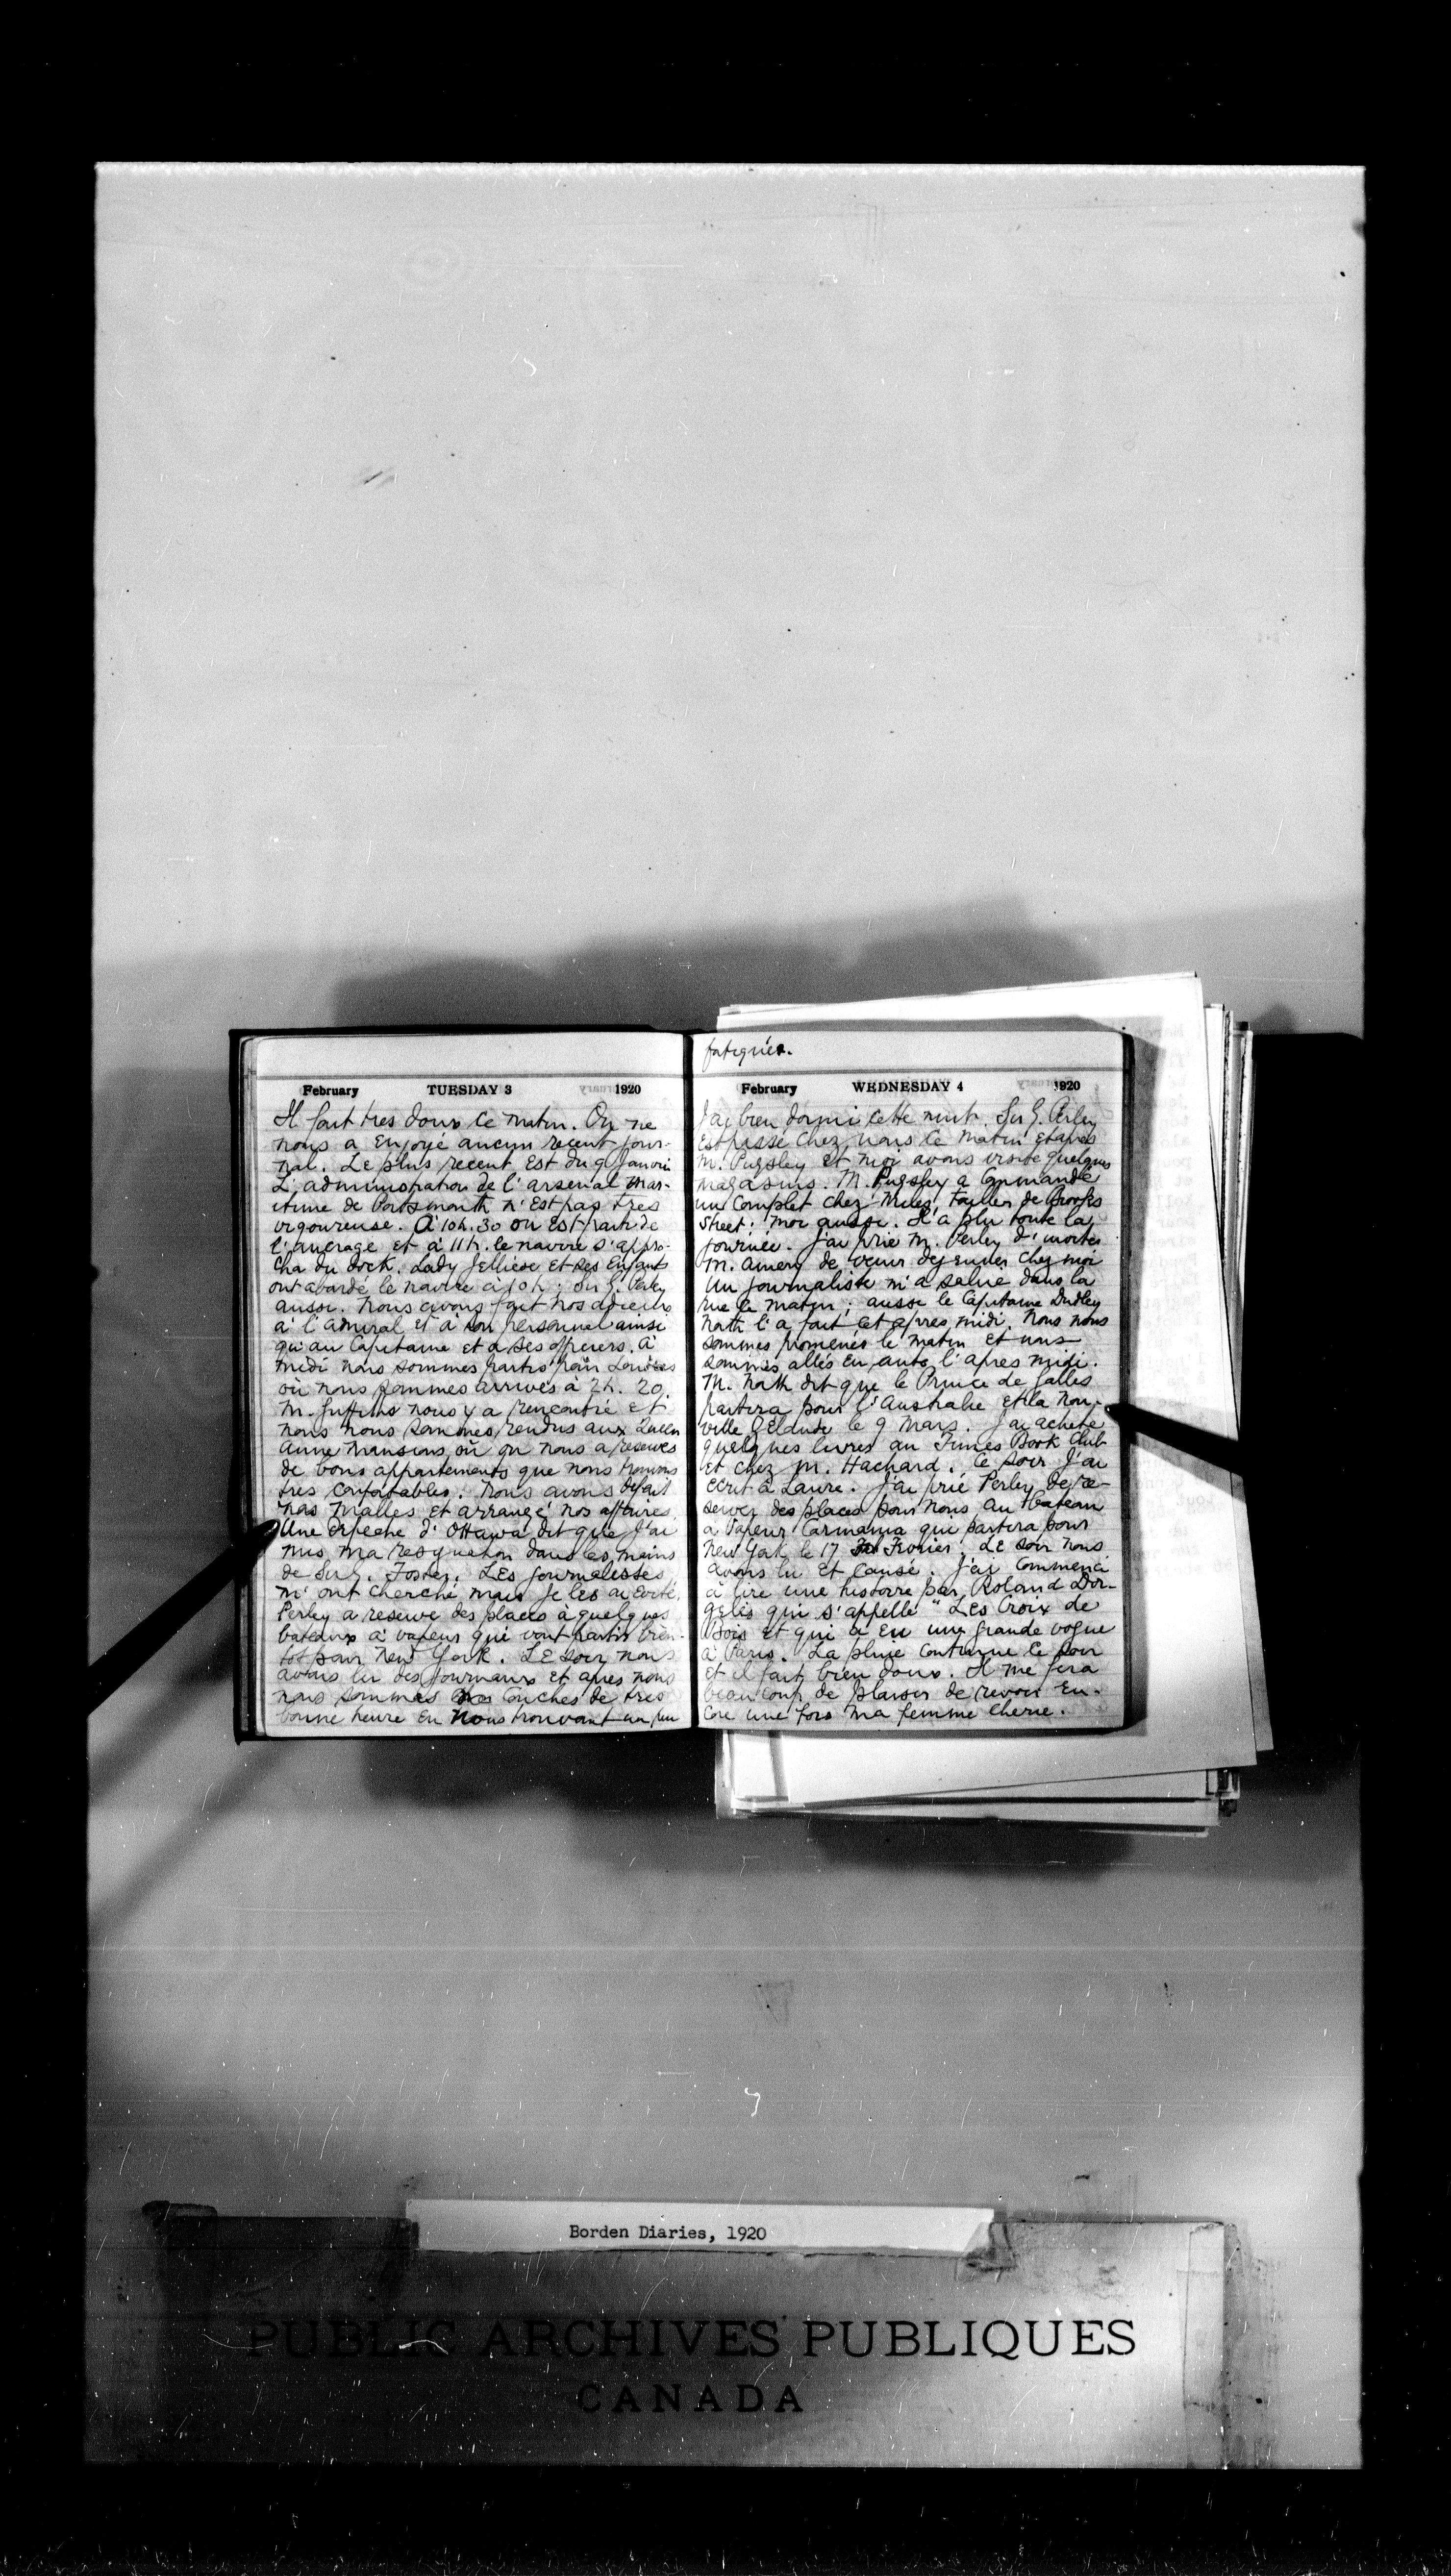 February TUESDAY 3 1920
Il fait tres doux ce matin. On ne
nous a envoyé aucun recent jour-
nal. Le plus recent est du 9 Janvier
L'administration de l'arsenal mar-
itime de Portsmouth n'est pas tres
vigoureuse. A 10h.30 on est parti de
l'ancrage et à 11h. le navire s'appro-
cha du dock. Lady Jellicoe et ses enfants
ont abordé le navire à 10h; Sir G. Perley
aussi. Nous avons fait nos adieux
à l'amiral et à son personnel ainsi
qu'au Capitaine et a ses officiers. A
midi nous sommes partis pour Londres
où nous sommes arrivés à 2h. 20.
M. Griffiths nous y a rencontré et
nous nous sommes rendus aux Queen
Anne Mansions où on nous a reservés
de bons appartements que nous trouvons
tres confortables. Nous avons defait
nos malles et arrangé nos affaires.
Une depeche d'Ottawa dit que j'ai
mis ma resignation dans les mains
de Sir G. Foster. Les journalistes
m'ont cherché mais je les ai evité.
Perley a reservé des places à quelques
bateaux à vapeur qui vont partir bien-
tot pour New York. Le soir nous
avons lu des journaux et apres nous
nous sommes couchés de tres
bonne heure en nous trouvant un peu
fatigués.
February WEDNESDAY 4 1920
J'ai bien dormi cette nuit. Sir G. Perley
est passé chez nous ce matin et apres
M. Pugsley et moi avons visité quelques
magasins. M. Pugsley a commandé
un complet chez Miles, tailler de Brooks
Street; moi aussi. Il a plu toute la
journée. J'ai prié M. Perley d'inviter
M. Amery de venir dejeuner chez moi
Un journaliste m'a salué dans la
rue le matin; aussi le Capitaine Dudley
North l'a fait cet apres midi. Nous nous
sommes promenés le matin et nous
sommes allés en auto l'apres midi.
M. North dit que le Prince de Galles
partira pour l'Australie et la Nou-
velle Zelande le 9 Mars. J'ai acheté
quelques livres au Times Book Club
et chez M. Hachard. Ce soir J'ai
ecrit à Laure. J'ai prié Perley de re-
server des places pour nous au bateau
a vapeur Carmania qui partira pour
New York le 17 Fevrier. Le soir nous
avons lu et causé. J'ai commencé
à lire une histoire par Roland Dor-
gelès qui s'appelle "Les Croix de
Bois et qui a eu une grande vogue
à Paris. La pluie continue le soir
et il fait bien doux. Il me fera
beaucoup de plaisir de revoir en-
core une fois ma femme cherie.
Borden Diaries, 1920
PUBLIC ARCHIVES PUBLIQUES
CANADA